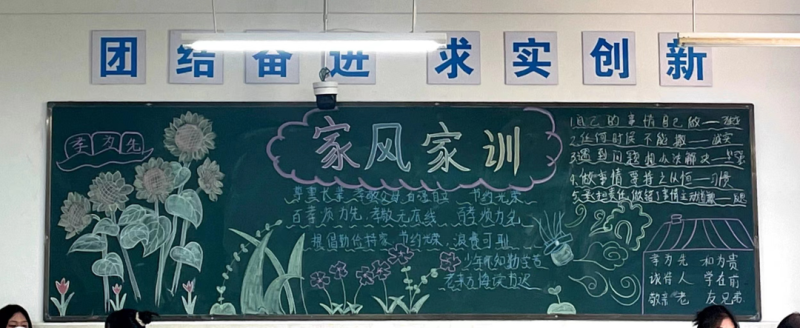 团结奋进 求实创新
孝为先
家风家训
尊重长辈 孝敬父母 节约光荣
百善须为先 孝敬无底线 百善须为先
提倡勤俭持家 节约光荣 浪费可耻
少年不知勤学苦
老来方悔读书迟
1.自己的事情自己做
2.任何时候不能撒——诚实
3.遇到问题想办法解决
4.做事情要持之以恒——习惯
孝为先 和为贵
诚待人 学在前
敬亲老 友兄弟